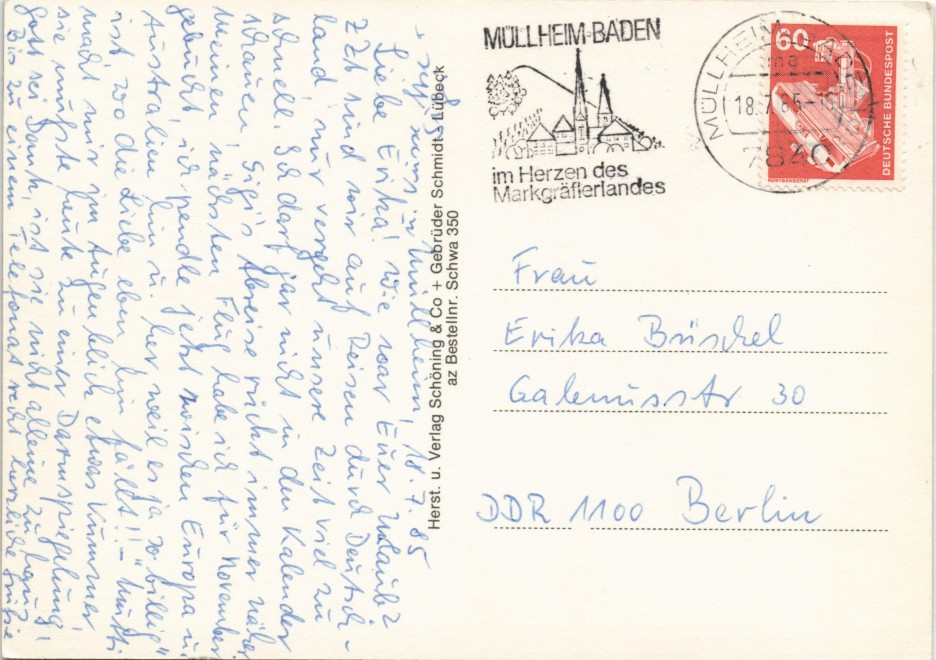 z. Zt. Müllheim, 18.7.85
Liebe Erika! Wie war Euer Urlaub?
Z.Zt. sind wir auf Reisen durch Deutsch-
land nur vergeht unsere Zeit viel zu
schnell. Ich darf gar nicht in den Kalender
schauen, Sigi's Abreise rückt immer näher
Meinen nächsten Flug habe ich für November
gebucht, ich pendle jetzt zwischen Europa u.
Australien hin u. her, weil es ja so "billig"
ist, wo die Liebe eben hin fällt!! - Mutti
macht mir im Augenblick etwas Kummer
sie mußte heute zu einer Darmspiegelung,
gott sei Dank, ist sie nicht alleine zu haus!
Bis zu einem Telefonat recht herzliche Grüße
Herst. u. Verlag Schöning & Co + Gebrüder Schmidt - Lübeck
az Bestellnr. Schwa 350
MÜLLHEIM-BADEN
im Herzen des
Markgräflerlandes
MÜLLHEIM
18.7.85-
7840
60
DEUTSCHE BUNDESPOST
RÖNTGENGERÄT
Frau
Erika Büschel
Galenusstr 30
DDR 1100 Berlin